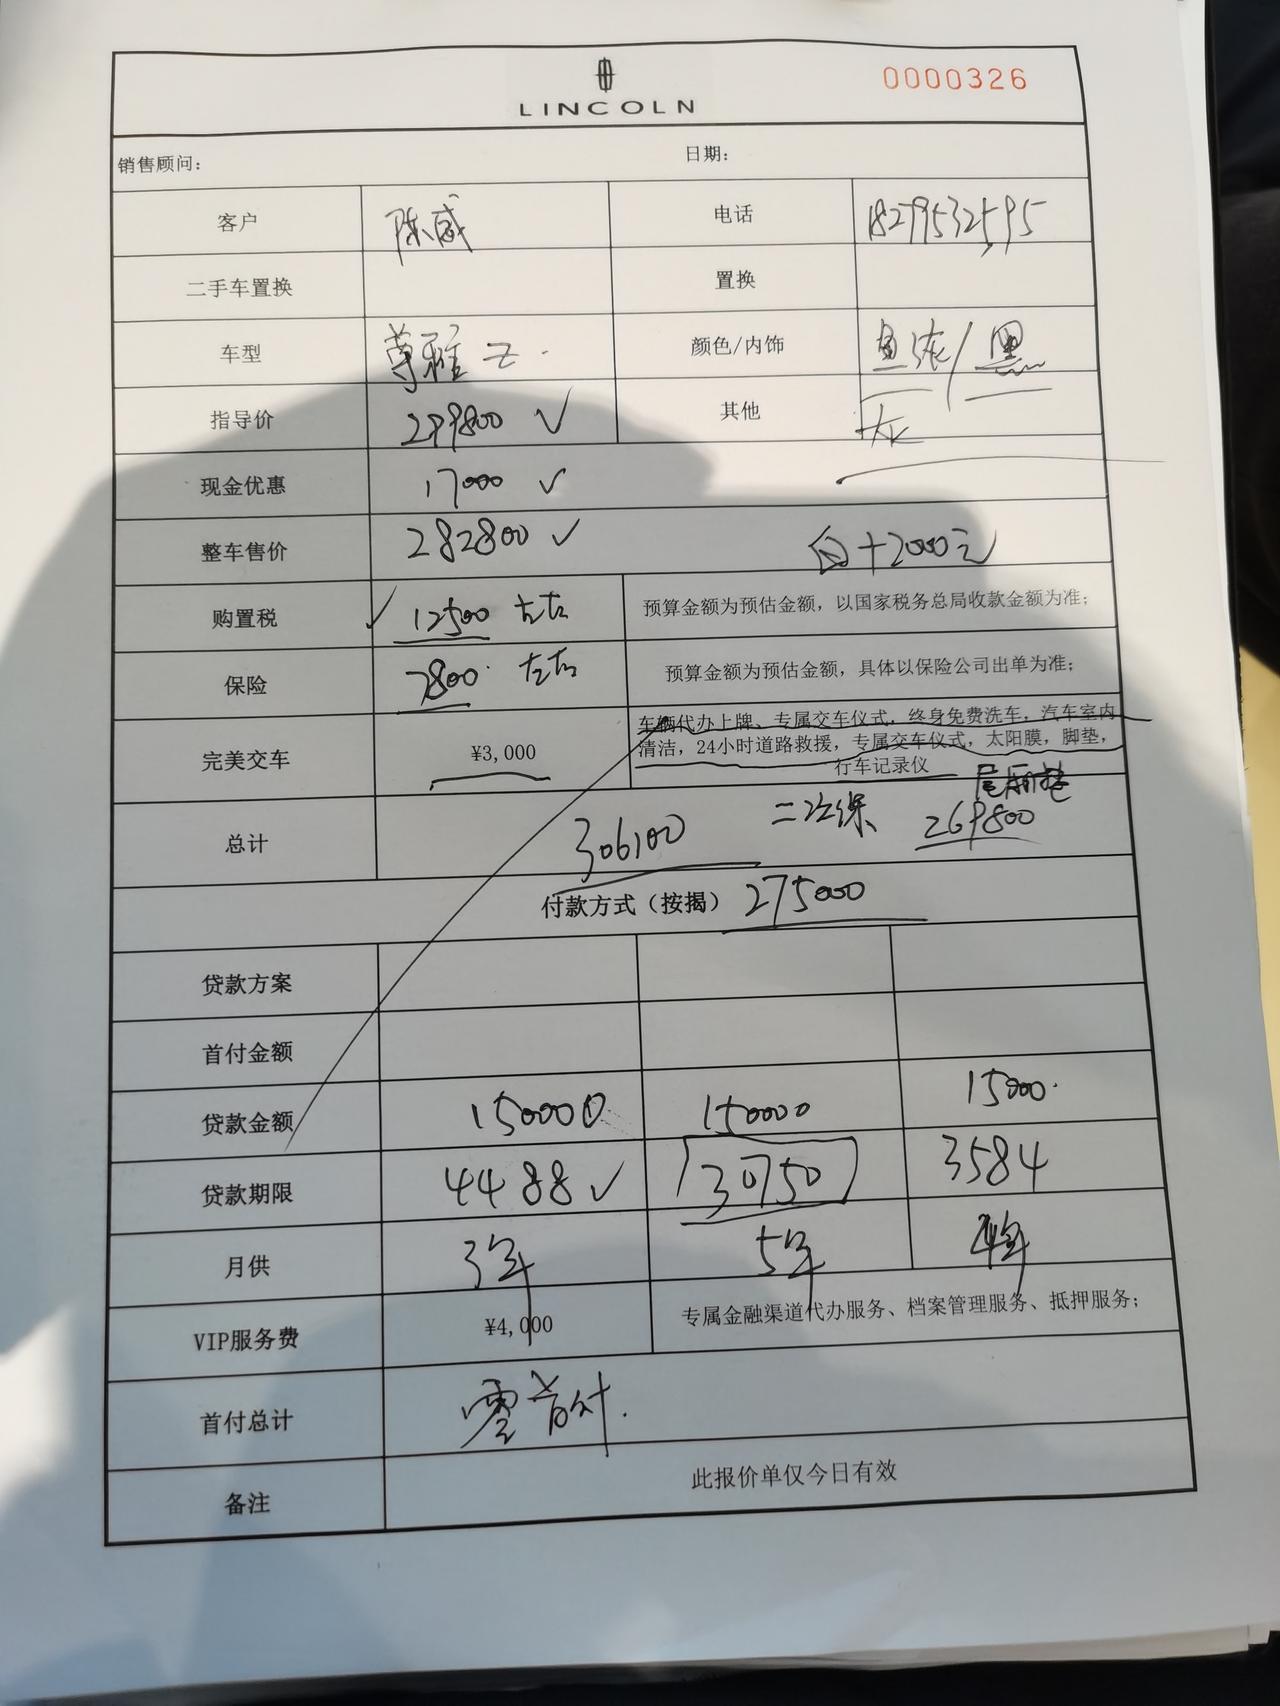 LINCOLN
0000326
销售顾问： 日期：
客户 陈威 电话 18279532595
二手车置换 置换
车型 尊雅 Z 颜色/内饰 / 黑
指导价 299800 ✓ 其他 灰
现金优惠 17000 ✓
整车售价 282800 ✓ 白+2000元
购置税 ✓ 12500 左右 预算金额为预估金额，以国家税务总局收款金额为准；
保险 7800 左右 预算金额为预估金额，具体以保险公司出单为准；
完美交车 ¥3,000 车辆代办上牌、专属交车仪式，终身免费洗车，汽车室内
清洁，24小时道路救援，专属交车仪式，太阳膜，脚垫，
行车记录仪
总计 306100 二次保 269800
付款方式（按揭） 275000
贷款方案
首付金额
贷款金额 150000 150000 15000
贷款期限 4488 ✓ 30750 3584
月供 3年 5年 4年
VIP服务费 ¥4,000 专属金融渠道代办服务、档案管理服务、抵押服务；
首付总计 零首付.
备注 此报价单仅今日有效